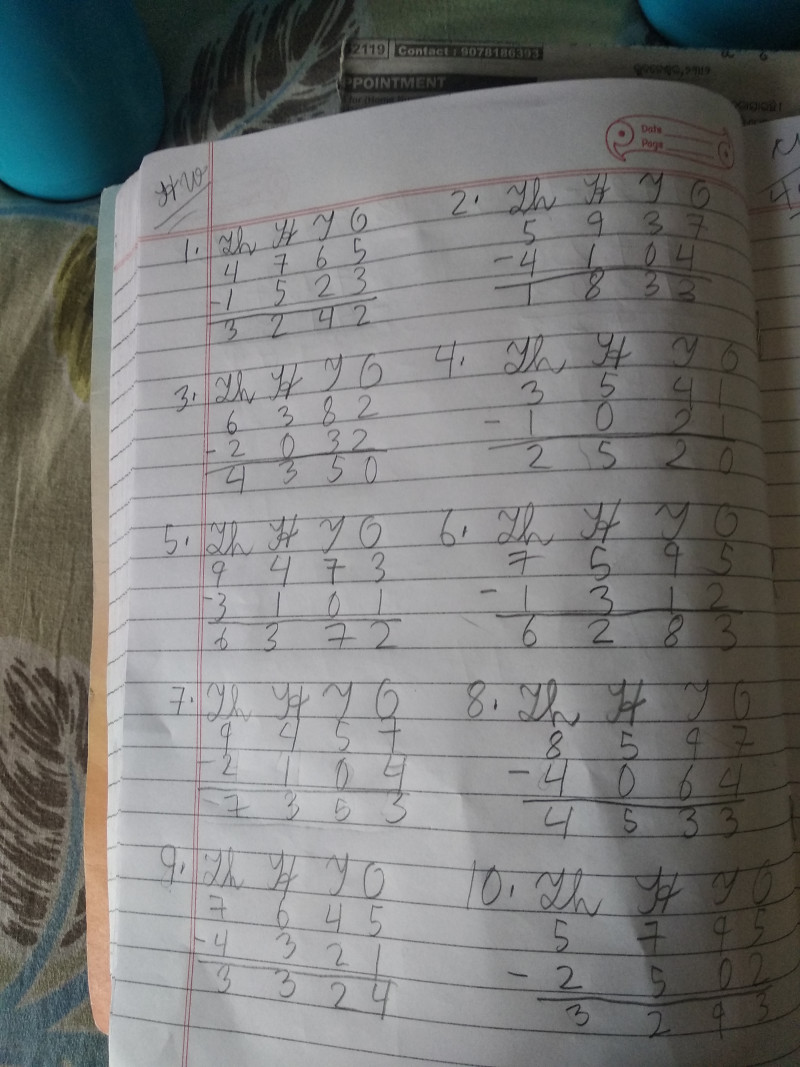 2119 Contact : 9078186393
PPOINTMENT
Date
Page
HW
1. Th H T O
4 7 6 5
-1 5 2 3
3 2 4 2
2. Th H T O
5 9 3 7
-4 1 0 4
1 8 3 3
3. Th H T O
6 3 8 2
-2 0 3 2
4 3 5 0
4. Th H T O
3 5 4 1
-1 0 2 1
2 5 2 0
5. Th H T O
9 4 7 3
-3 1 0 1
6 3 7 2
6. Th H T O
7 5 9 5
-1 3 1 2
6 2 8 3
7. Th H T O
9 4 5 7
-2 1 0 4
7 3 5 3
8. Th H T O
8 5 9 7
-4 0 6 4
4 5 3 3
9. Th H T O
7 6 4 5
-4 3 2 1
3 3 2 4
10. Th H T O
5 7 9 5
-2 5 0 2
3 2 9 3